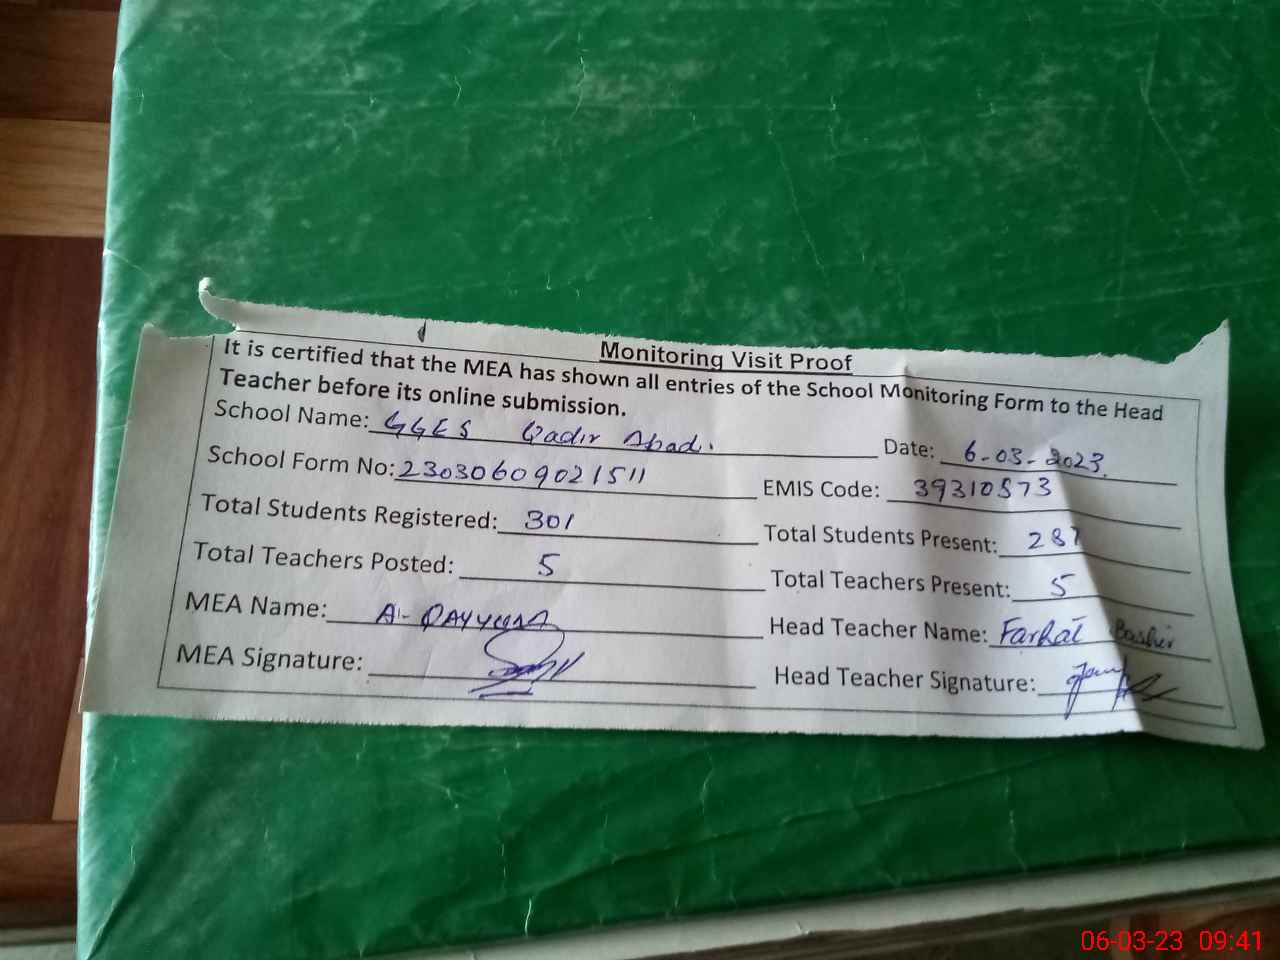 Monitoring Visit Proof
It is certified that the MEA has shown all entries of the School Monitoring Form to the Head
Teacher before its online submission.
School Name: GGES Qadir Abad. Date: 6-03-2023.
School Form No: 23030609021511 EMIS Code: 39310573
Total Students Registered: 301 Total Students Present: 287
Total Teachers Posted: 5 Total Teachers Present: 5
MEA Name: A-QAYYUM Head Teacher Name: Farhat Bashir
MEA Signature: Head Teacher Signature:
06-03-23 09:41